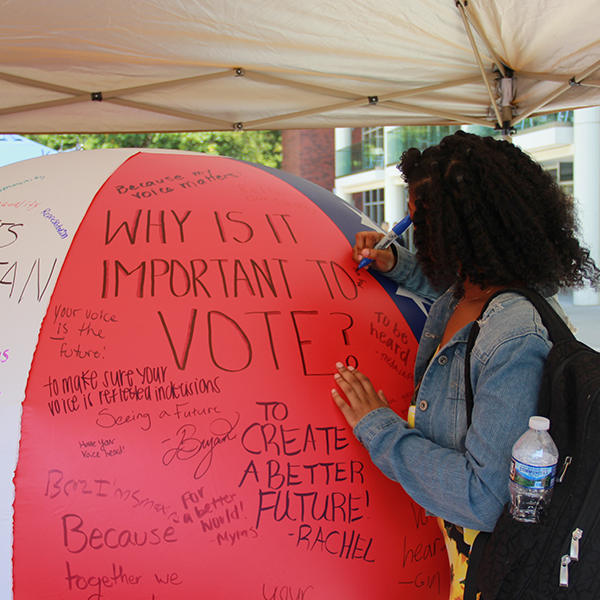 Because my
voice matters
WHY IS IT
IMPORTANT TO
VOTE?
Your voice
is the
future!
to make sure your
voice is reflected in decisions
Seeing a Future
Have your
voice heard!
Bryan
TO
CREATE
A BETTER
FUTURE!
-RACHEL
to be
heard
For
a better
world!
-Myra
Because
together we
your
hear